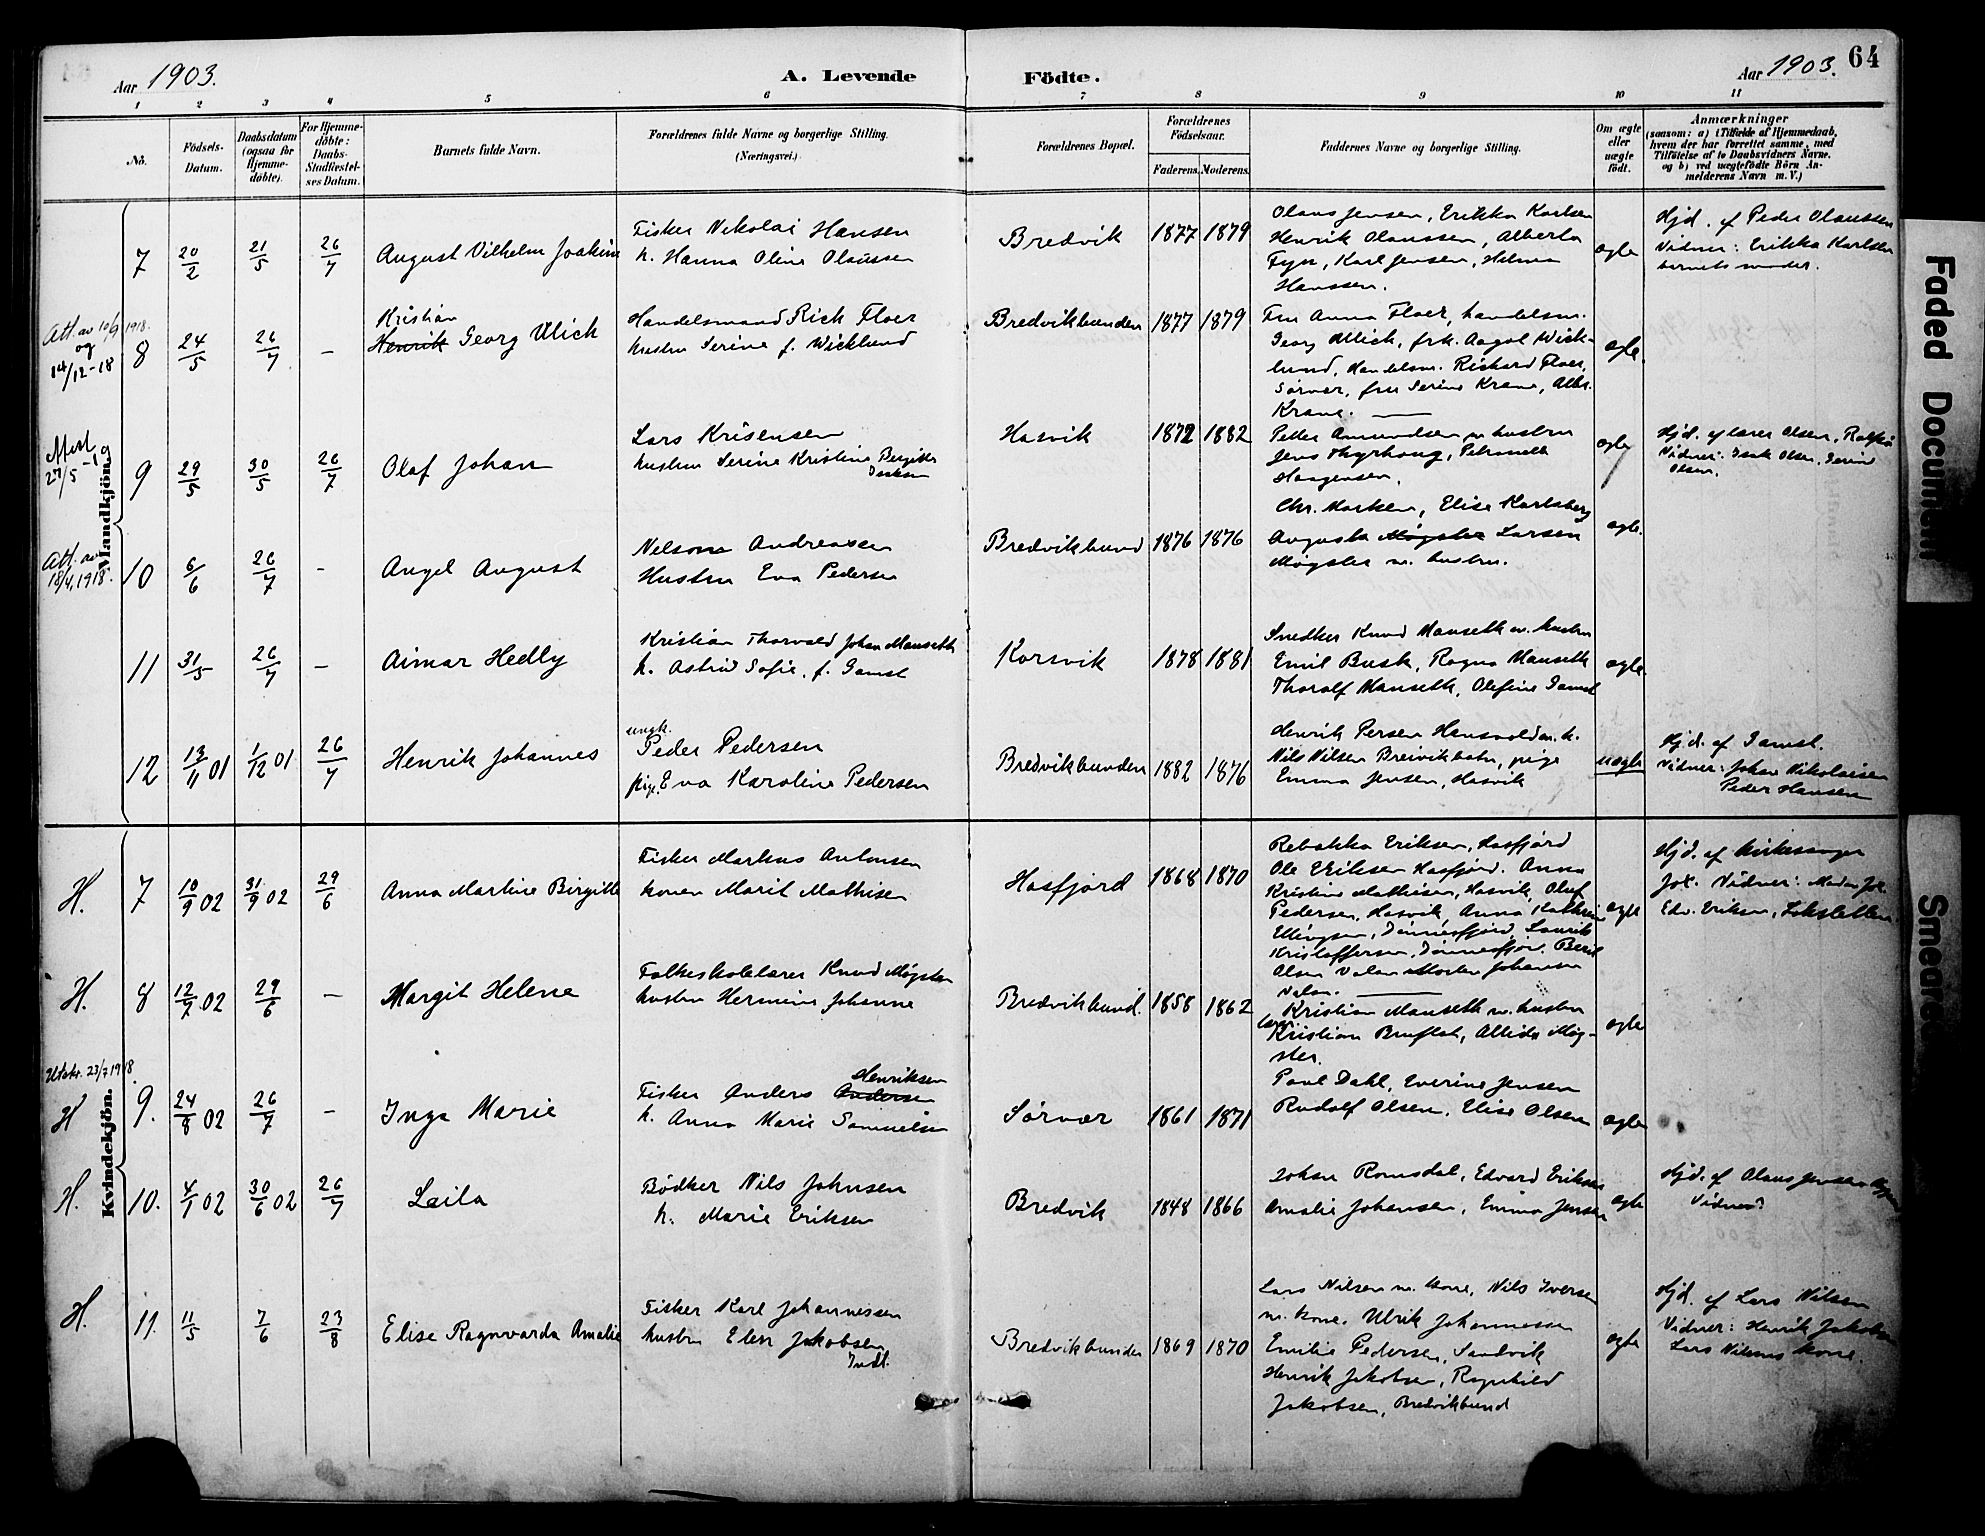 Aar 1903.
A. Levende
Födte.
Aar 1903.
64
1 2 3 4 5 6 7 8 9 10 11
No.
Födsels-
Datum.
Daabsdatum
(ogsaa för
Hjemme-
döbte).
For Hjemme-
döbte:
Daabs-
Stadfæstel-
ses Datum.
Barnets fulde Navn.
Forældrenes fulde Navne og borgerlige Stilling.
(Næringsvei.)
Forældrenes Bopæl.
Forældrenes
Födselsaar.
Faderens. Moderens.
Faddernes Navne og borgerlige Stilling.
Om ægte
eller
uægte
födt.
Anmærkninger
(saasom: a) i Tilfælde af Hjemmedaab,
hvem der har forrettet samme, med
Tilföielse af to Daabsvidners Navne,
og b) ved uægtefödte Börn An-
melderens Navn m. V.)
Mandkjön.
7 20/2 21/5 26/7 August Vilhelm Joakim
Fisker Nikolai Hansen
h. Hanna Oline Olaussen
Bredvik 1877 1879
Olaus Jensen, Erikka Karlsen
Henrik Olaussen, Alberta
Fyn, Karl Jensen, Helma
Hanssen.
ægte
Hjd. af Peder Olaussen
Vidner: Erikka Karlsen
barnets moder.
Att. av 10/9 1918.
og
14/12-18
8 24/5 26/7 –
Kristian
Henrik Georg Ulich
Handelsmand Rich Floer
hustru Serine f. Wicklund
Bredvikbunden 1877 1879
Fru Anna Floer, handelsm.
Georg Ullich, frk. Aagot Wick-
lund, Handelsm. Richard Floer,
Sörvær, fru Serine Krane, Albr.
Krane.
ægte.
27/5-19
9 29/5 30/5 26/7 Olaf Johan
Lars Krisensen
hustru Serine Kristine Bergitte
Hasvik 1872 1882
Petter Amundsen m hustru
Jens Thyrhaug, Petronelle
Haagensen.
ægte
Hjd. af lærer Olsen,
Vidner: Isak Olsen, Serine
Olsen.
Att. av
18/4 1918.
10 6/6 26/7 – Angel August
Nelson Andreassen
Hustru Eva Pedersen
Bredvikbund 1876 1876
Chr. Marken, Elise Karlsberg
Augusta Møgster Larsen
Møgster m. hustru.
ægte.
11 31/5 26/7 – Aimar Hedly
Kristian Thorvald Johan Mauseth
h. Astrid Sofie, f. Gamst
Korsvik 1878 1881
Snedker Knud Mauseth m. hustru
Emil Busk, Ragna Mauseth
Thoralf Mauseth, Olefine Gamst
ægte.
12 13/11 01 1/12 01 26/7 Henrik Johannes
ungk.
Peder Pedersen
pige. Eva Karoline Pedersen
Bredvikbunden 1882 1876
Henrik Persen m. h.
Nils Nilsen Breivikbotn, pige
Emma Jensen, Hasvik
uægte
Hjd. af Gamst.
Vidner: Johan Nikolaisen
Peder Hansen
Kvindekjön.
H. 7 10/9 02 31/9 02 29/6 Anna Martine Birgitte
Fisker Markus Antonsen
konen Marit Mathisen
Hasfjord 1868 1870
Rebekka Eriksen, Hasfjord
Ole Eriksen Hasfjord. Anna
Kristine Mathisen, Hasvik, Oluf
Pedersen, Hasvik, Anna Kathrine
Ellingsen, Dönnesfjord, Laurits
Kristoffersen, Dönnesfjor. Berit
Olsen Valan Morten Johansen
Valan.
ægte
Hjd. af kirkesanger
Jok. Vidner:
Edv. Eriksen,
H. 8 12/7 02 29/6 – Margit Helene
Folkeskolelærer Knud Møgster
hustru Hermine Johanne
Bredvikbund. 1858 1862
Kristian Mauseth m. hustru
Kristian Bruflot, Allida Møg-
ster.
ægte
Utskr. 23/7 1918.
H 9. 24/8 02 26/7 – Inga Marie
Henriksen
Fisker Anders Andersen
h. Anna Marie Samuelsen
Sörvær 1861 1871
Paul Dahl, Everine Jensen
Rudolf Olsen, Elise Olsen
ægte
H. 10. 4/1 02 30/6 02 26/7 Laila
Bödker Nils Johnsen
h. Marie Eriksen
Bredvik 1848 1866
Johan Romsdal, Edvard Eriksen
Amalie Johansen, Emma Jensen
ægte
Hjd. af Olaus Jensen
Vidner?
H. 11. 11/5 7/6 23/8 Elise Ragnvarda Amalie
Fisker Karl Johannessen
hustru Elen Jakobsen
Bredvikbunden 1869 1870
Lars Nilsen m. kone, Nils Iversen
m. kone. Ulrik Johannessen
Emilie Pedersen, Sandvik
Henrik Jakobsen, Ragnhild
Jakobsen, Bredvikbund
ægte
Hjd. af Lars Nilsen
Vidner: Henrik Jakobsen
Lars Nilsens kone.
Faded Document
Smeared